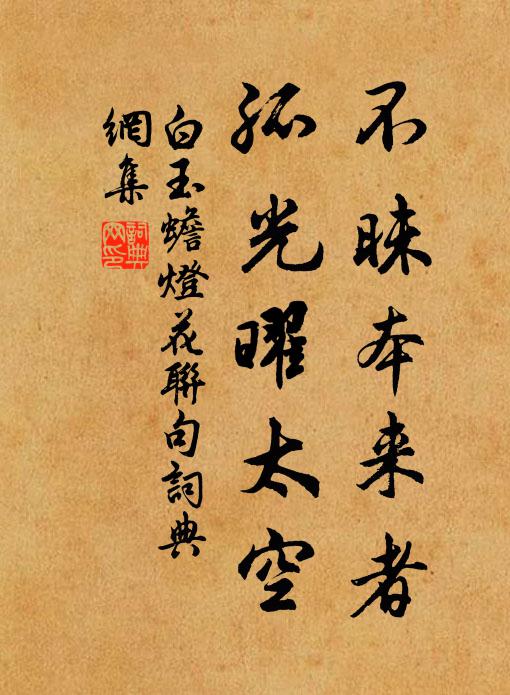 不昧本来者
孤光曜太空
白玉蟾燈花聯句詞典
網集
詞典
网印